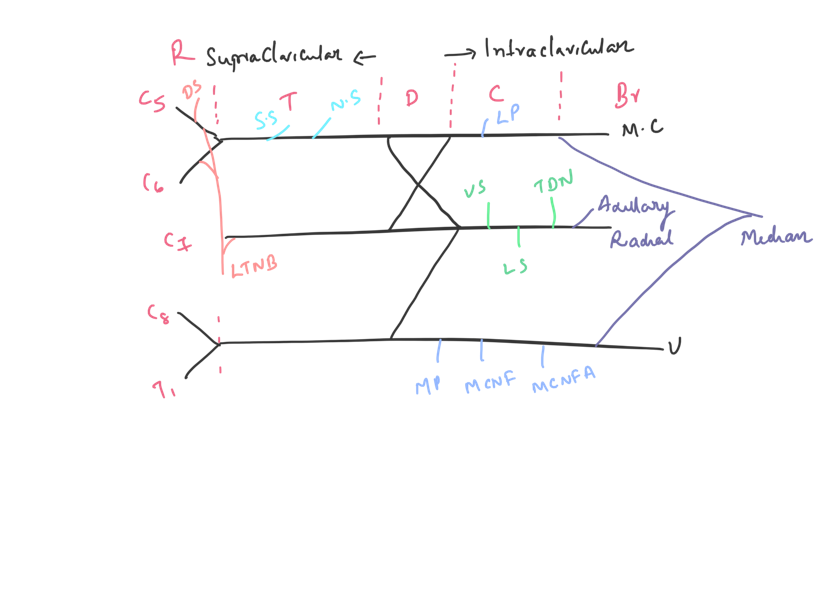 R Supraclavicular ← → Infraclavicular
DS T D C Br
C5
S.S N.S LP
M.C
C6
VS TDN
Axillary
C7 Radial Median
LTNB LS
C8
U
T1 MP MCNF MCNFA